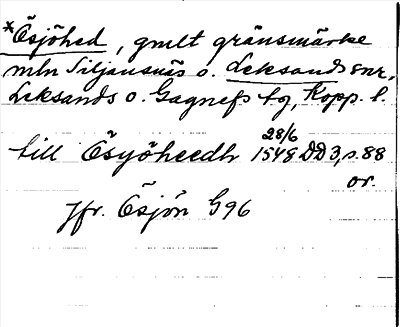 *Ösjöhed, gmlt gränsmärke
mln Siljansnäs o. Leksands snr,
Leksands o. Gagnefs tg, Kopp. l.
till Ösyöheedh 28/6 1548 DD3, s. 88
or.
Jfr. Ösjön G96